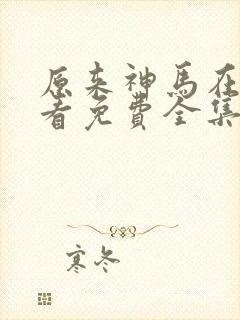 原来神马在
看免费全集
寒冬